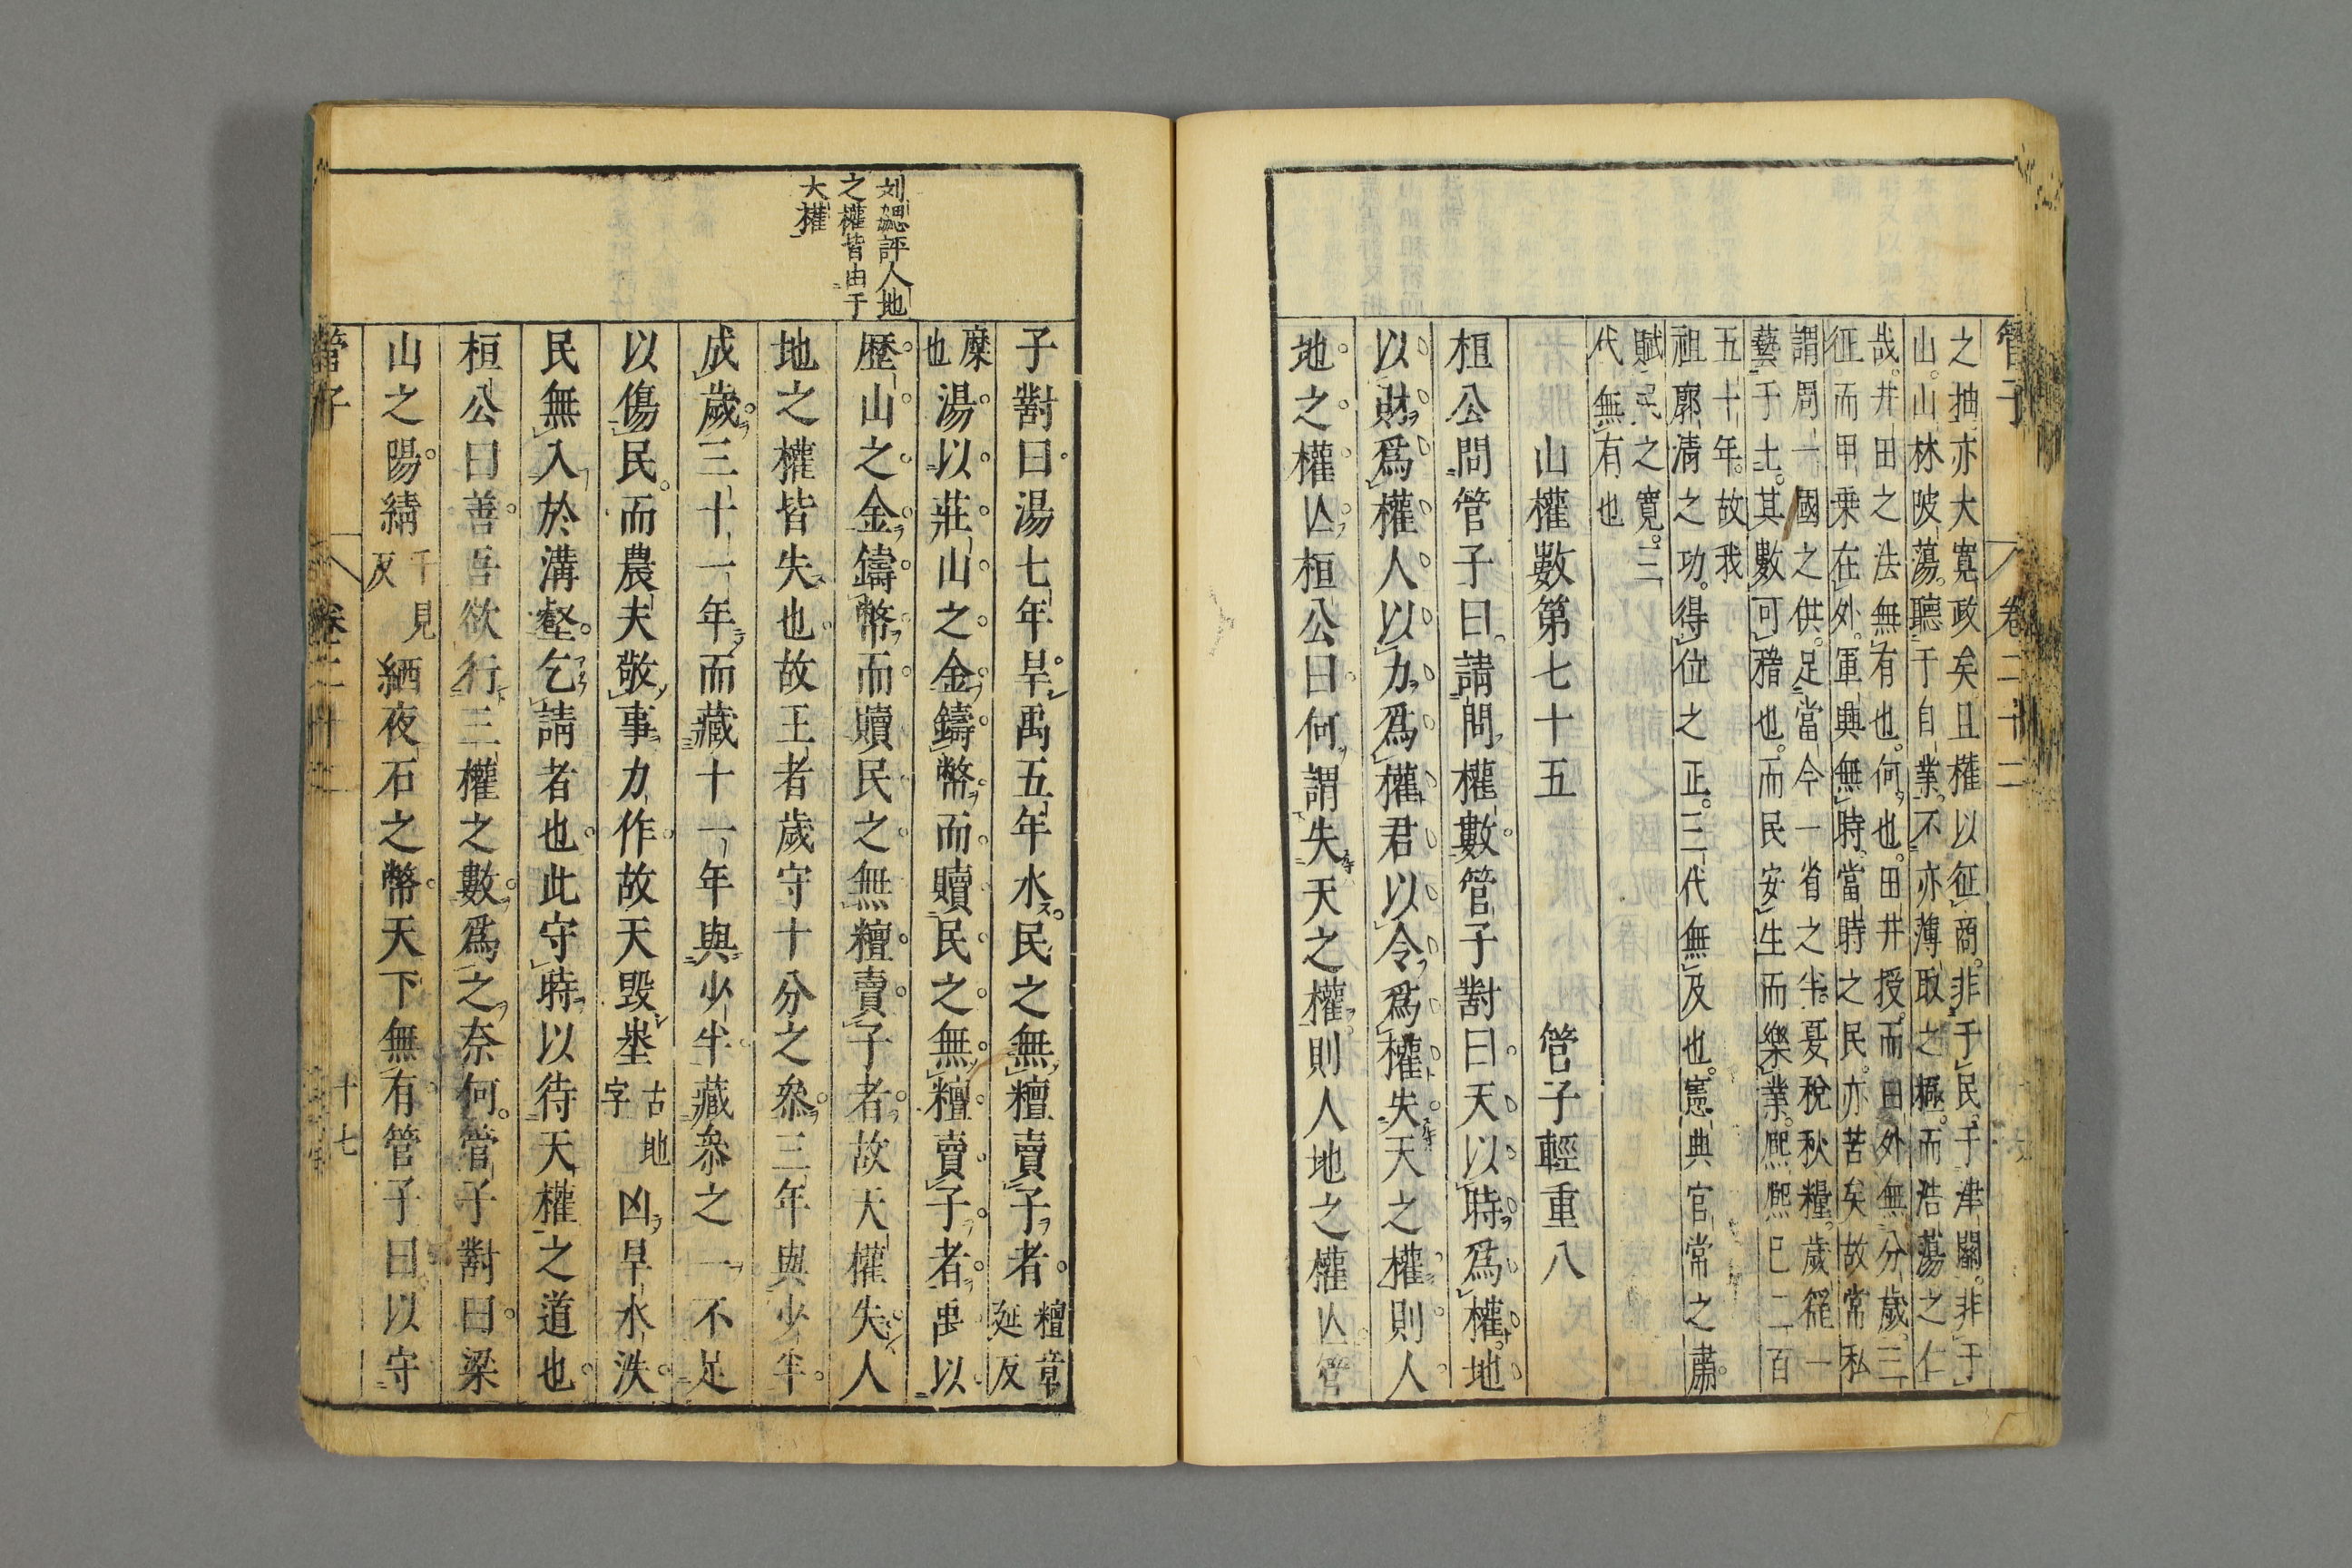 管子
卷二十二
之抽亦大寬政矣且權以征商非于民于津關非于
山山林陂蕩聽于自業不亦薄取之極而浩蕩之仁
哉井田之法無有也何也田井授而田外無分歲三
征而甲乗在外軍興無時當時之民亦苦矣故常私
謂周一國之供足當今一省之半夏稅秋糧歲徭一
藝于土其數可稽也而民安生而樂業熈熈已二百
五十年故我
祖廓清之功得位之正三代無及也憲典官常之肅
賦民之寛三
代無有也
山權數第七十五
管子輕重八
桓公問管子曰請問權數管子對曰天以時爲權地
以財爲權人以力爲權君以令爲權失天之權則人
地之權亾桓公曰何謂失天之權則人地之權亾管
刘勰評人地
之權皆由于
大權
子對曰湯七年旱禹五年水民之無𥼷賣子者
𥼷章
延反
糜
也
湯以莊山之金鑄幣而贖民之無𥼷賣子者禹以
歷山之金鑄幣而贖民之無𥼷賣子者故天權失人
地之權皆失也故王者歲守十分之叅三年與少半
成歲三十一年而藏十一年與少半藏叅之一不足
以傷民而農夫敬事力作故天毀埊
古地
字
凶旱水泆
民無入於溝壑乞請者也此守時以待天權之道也
桓公曰善吾欲行三權之數爲之奈何管子對曰梁
山之陽綪
千見
反
絤夜石之幣天下無有管子曰以守
管子
卷二十二
十七